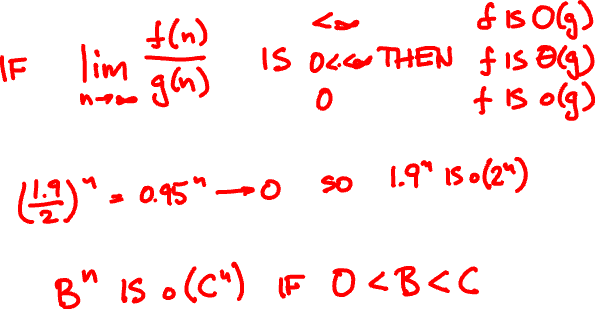 IF lim n→∞ f(n)/g(n) IS <∞ THEN f IS O(g)
0<<∞ f IS Θ(g)
0 f IS o(g)
(1.9/2)ⁿ = 0.95ⁿ → 0 SO 1.9ⁿ IS o(2ⁿ)
Bⁿ IS o(Cⁿ) IF 0<B<C